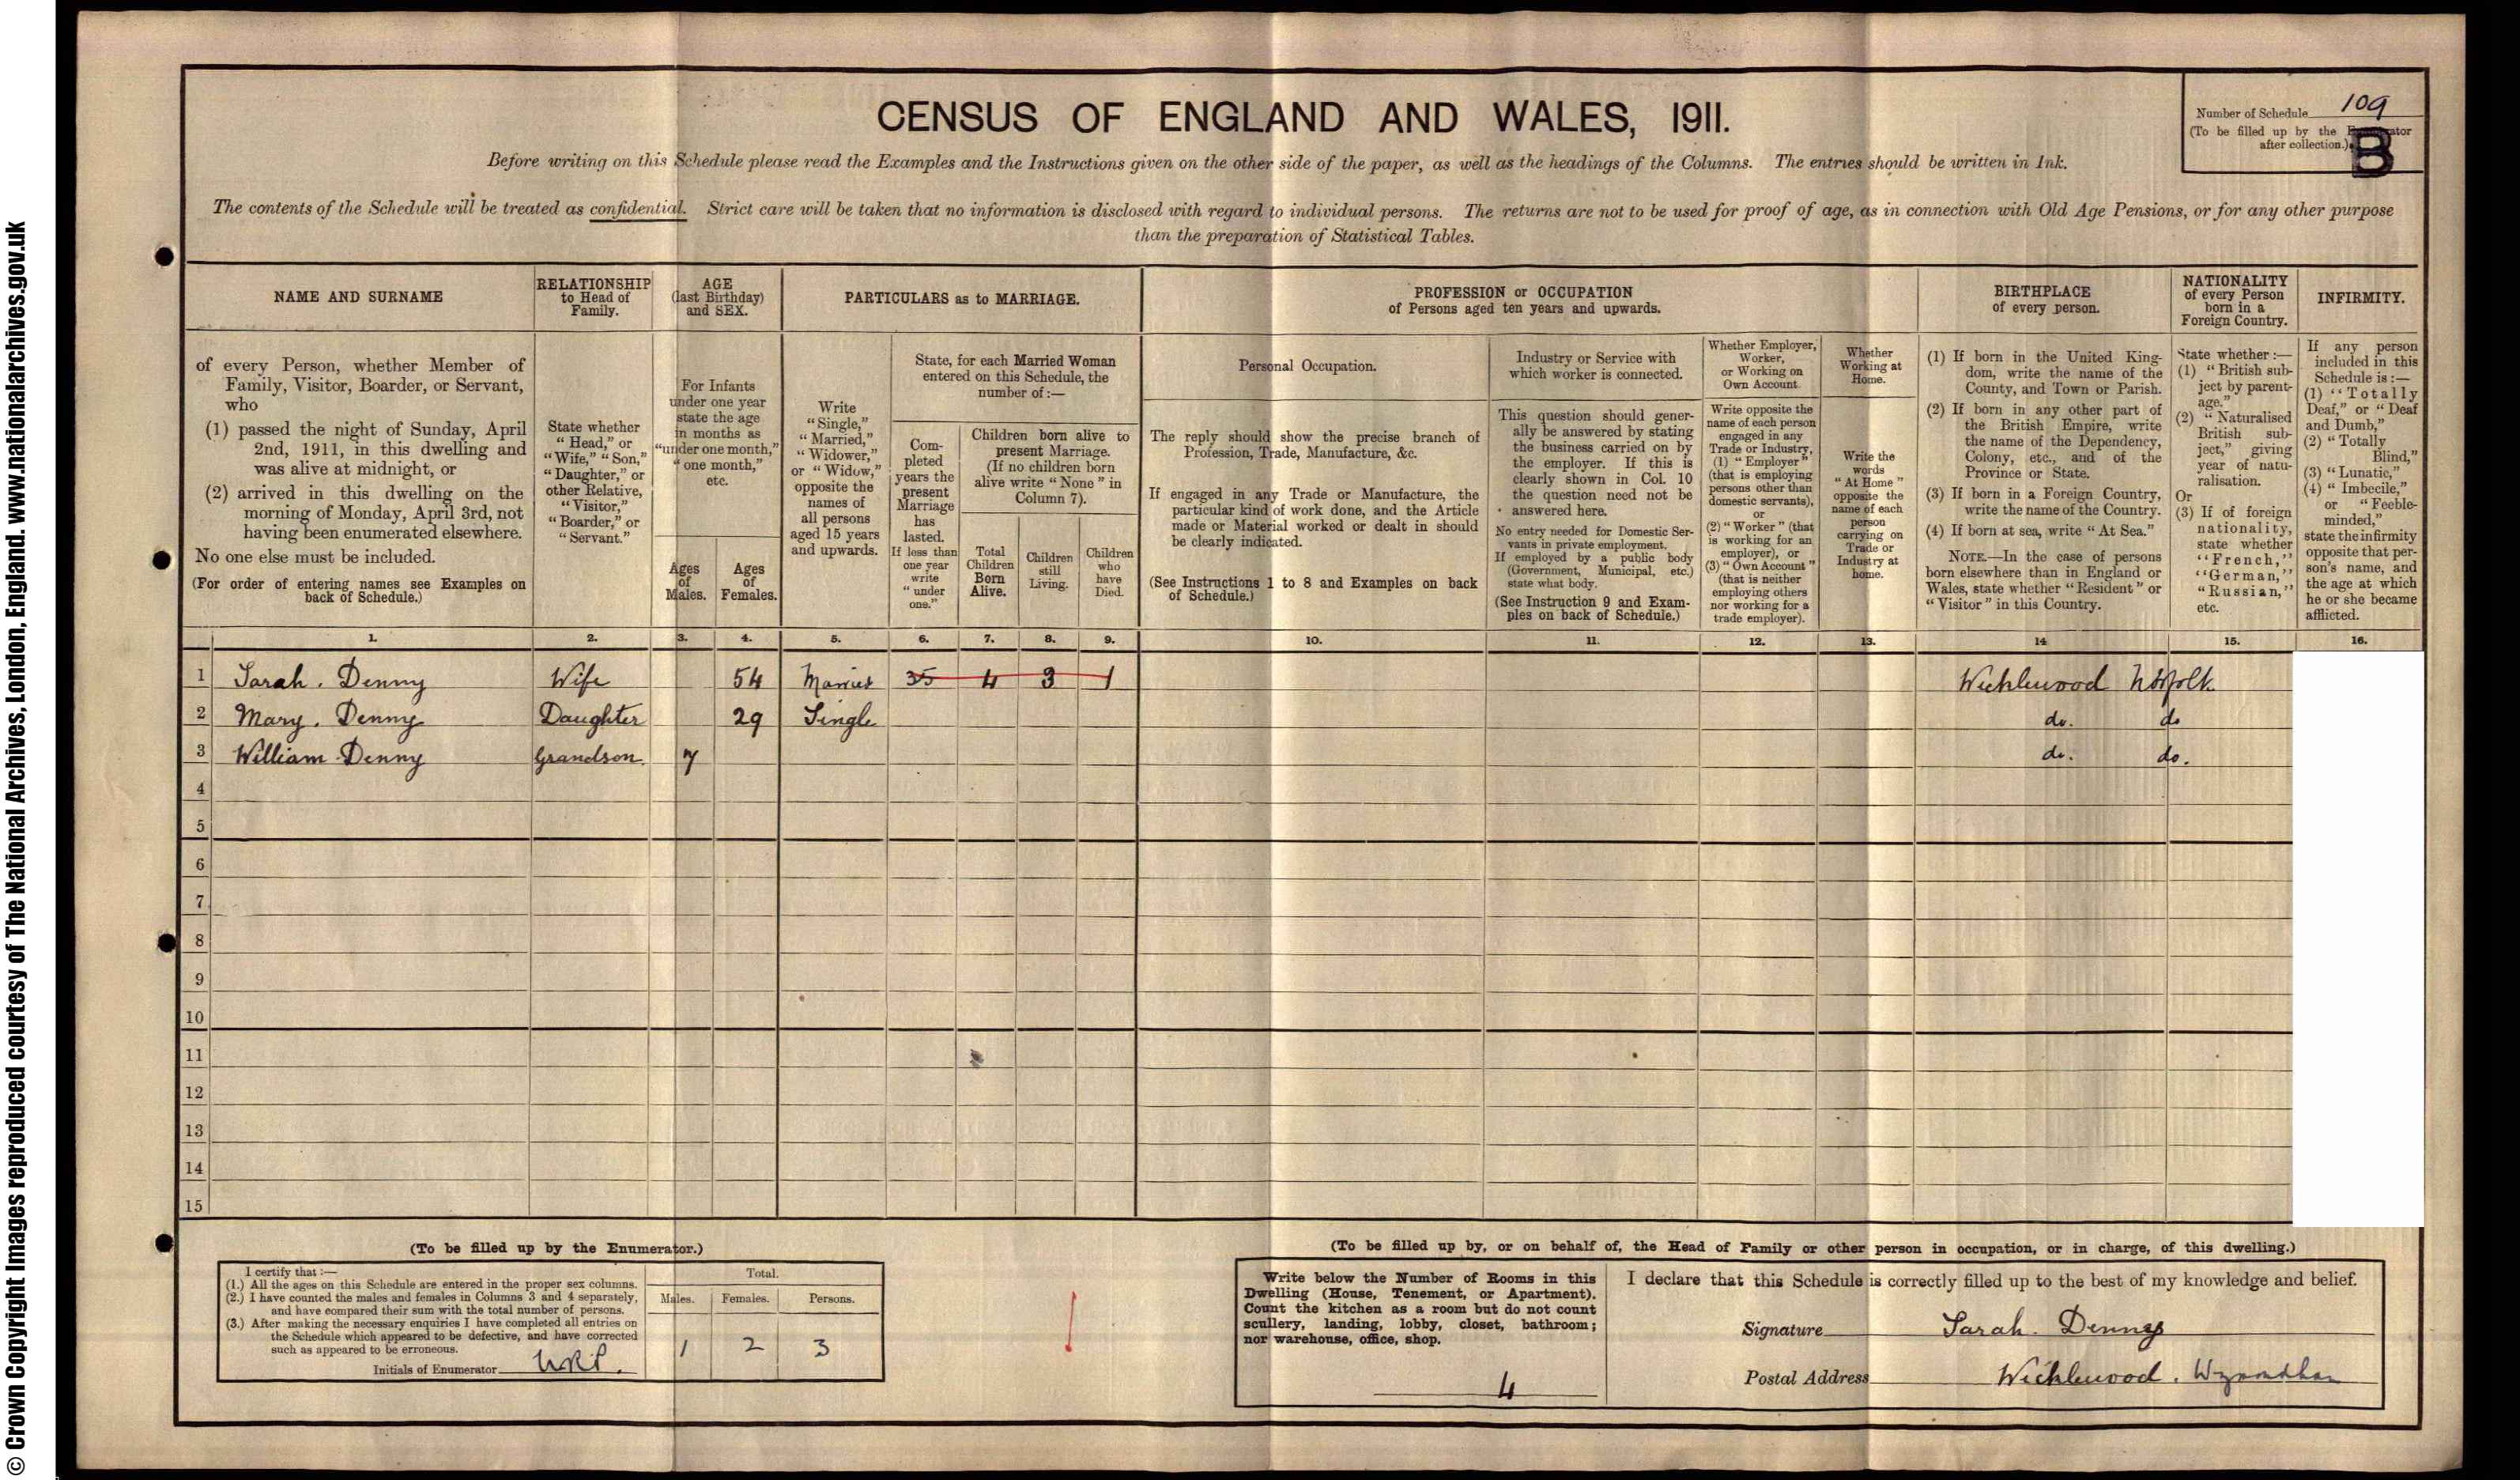 © Crown Copyright Images reproduced courtesy of The National Archives, London, England. www.nationalarchives.gov.uk
CENSUS OF ENGLAND AND WALES, 1911.
Number of Schedule 109
(To be filled up by the Enumerator
after collection.)
B
Before writing on this Schedule please read the Examples and the Instructions given on the other side of the paper, as well as the headings of the Columns. The entries should be written in Ink.
The contents of the Schedule will be treated as confidential. Strict care will be taken that no information is disclosed with regard to individual persons. The returns are not to be used for proof of age, as in connection with Old Age Pensions, or for any other purpose
than the preparation of Statistical Tables.
NAME AND SURNAME
of every Person, whether Member of
Family, Visitor, Boarder, or Servant,
who
(1) passed the night of Sunday, April
2nd, 1911, in this dwelling and
was alive at midnight, or
(2) arrived in this dwelling on the
morning of Monday, April 3rd, not
having been enumerated elsewhere.
No one else must be included.
(For order of entering names see Examples on
back of Schedule.)
RELATIONSHIP
to Head of
Family.
State whether
"Head," or
"Wife," "Son,"
"Daughter," or
other Relative,
"Visitor,"
"Boarder," or
"Servant."
AGE
(last Birthday)
and SEX.
For Infants
under one year
state the age
in months as
"under one month,"
"one month,"
etc.
Ages
of
Males.
Ages
of
Females.
PARTICULARS as to MARRIAGE.
Write
"Single,"
"Married,"
"Widower,"
or "Widow,"
opposite the
names of
all persons
aged 15 years
and upwards.
State, for each Married Woman
entered on this Schedule, the
number of :—
Com-
pleted
years the
present
Marriage
has
lasted.
If less than
one year
write
"under
one."
Children born alive to
present Marriage.
(If no children born
alive write "None" in
Column 7).
Total
Children
Born
Alive.
Children
still
Living.
Children
who
have
Died.
PROFESSION or OCCUPATION
of Persons aged ten years and upwards.
Personal Occupation.
The reply should show the precise branch of
Profession, Trade, Manufacture, &c.
If engaged in any Trade or Manufacture, the
particular kind of work done, and the Article
made or Material worked or dealt in should
be clearly indicated.
(See Instructions 1 to 8 and Examples on back
of Schedule.)
Industry or Service with
which worker is connected.
This question should gener-
ally be answered by stating
the business carried on by
the employer. If this is
clearly shown in Col. 10
the question need not be
answered here.
No entry needed for Domestic Ser-
vants in private employment.
If employed by a public body
(Government, Municipal, etc.)
state what body.
(See Instruction 9 and Exam-
ples on back of Schedule.)
Whether Employer,
Worker,
or Working on
Own Account.
Write opposite the
name of each person
engaged in any
Trade or Industry,
(1) "Employer"
(that is employing
persons other than
domestic servants),
or
(2) "Worker" (that
is working for an
employer), or
(3) "Own Account"
(that is neither
employing others
nor working for a
trade employer).
Whether
Working at
Home.
Write the
words
"At Home"
opposite the
name of each
person
carrying on
Trade or
Industry at
home.
BIRTHPLACE
of every person.
(1) If born in the United King-
dom, write the name of the
County, and Town or Parish.
(2) If born in any other part of
the British Empire, write
the name of the Dependency,
Colony, etc., and of the
Province or State.
(3) If born in a Foreign Country,
write the name of the Country.
(4) If born at sea, write "At Sea."
NOTE.—In the case of persons
born elsewhere than in England or
Wales, state whether "Resident" or
"Visitor" in this Country.
NATIONALITY
of every Person
born in a
Foreign Country.
State whether :—
(1) "British sub-
ject by parent-
age."
(2) "Naturalised
British sub-
ject," giving
year of natu-
ralisation.
Or
(3) If of foreign
nationality,
state whether
"French,"
"German,"
"Russian,"
etc.
INFIRMITY.
If any person
included in this
Schedule is :—
(1) "Totally
Deaf," or "Deaf
and Dumb,"
(2) "Totally
Blind,"
(3) "Lunatic,"
(4) "Imbecile,"
or "Feeble-
minded,"
state the infirmity
opposite that per-
son's name, and
the age at which
he or she became
afflicted.
1. 2. 3. 4. 5. 6. 7. 8. 9. 10. 11. 12. 13. 14 15. 16.
1 Sarah. Denny Wife 54 Married 35 4 3 1 Wicklewood Norfolk.
2 Mary. Denny Daughter 29 Single do. do
3 William Denny Grandson. 7 do. do.
4
5
6
7
8
9
10
11
12
13
14
15
(To be filled up by the Enumerator.)
I certify that :—
(1.) All the ages on this Schedule are entered in the proper sex columns.
(2.) I have counted the males and females in Columns 3 and 4 separately,
and have compared their sum with the total number of persons.
(3.) After making the necessary enquiries I have completed all entries on
the Schedule which appeared to be defective, and have corrected
such as appeared to be erroneous.
Initials of Enumerator
Total.
Males. Females. Persons.
1 2 3
(To be filled up by, or on behalf of, the Head of Family or other person in occupation, or in charge, of this dwelling.)
Write below the Number of Rooms in this
Dwelling (House, Tenement, or Apartment).
Count the kitchen as a room but do not count
scullery, landing, lobby, closet, bathroom;
nor warehouse, office, shop.
4
I declare that this Schedule is correctly filled up to the best of my knowledge and belief.
Signature Sarah. Denny
Postal Address Wicklewood. Wymondham